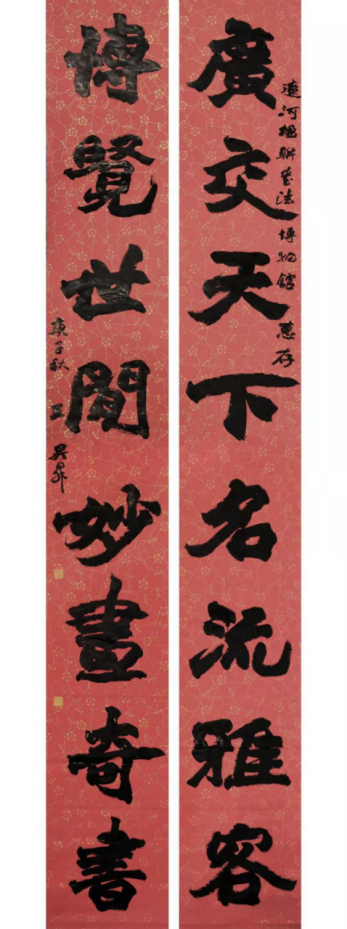 廣交天下名流雅客
運河楹聯書法博物館惠存
博覽世間妙畫奇書
庚子秋